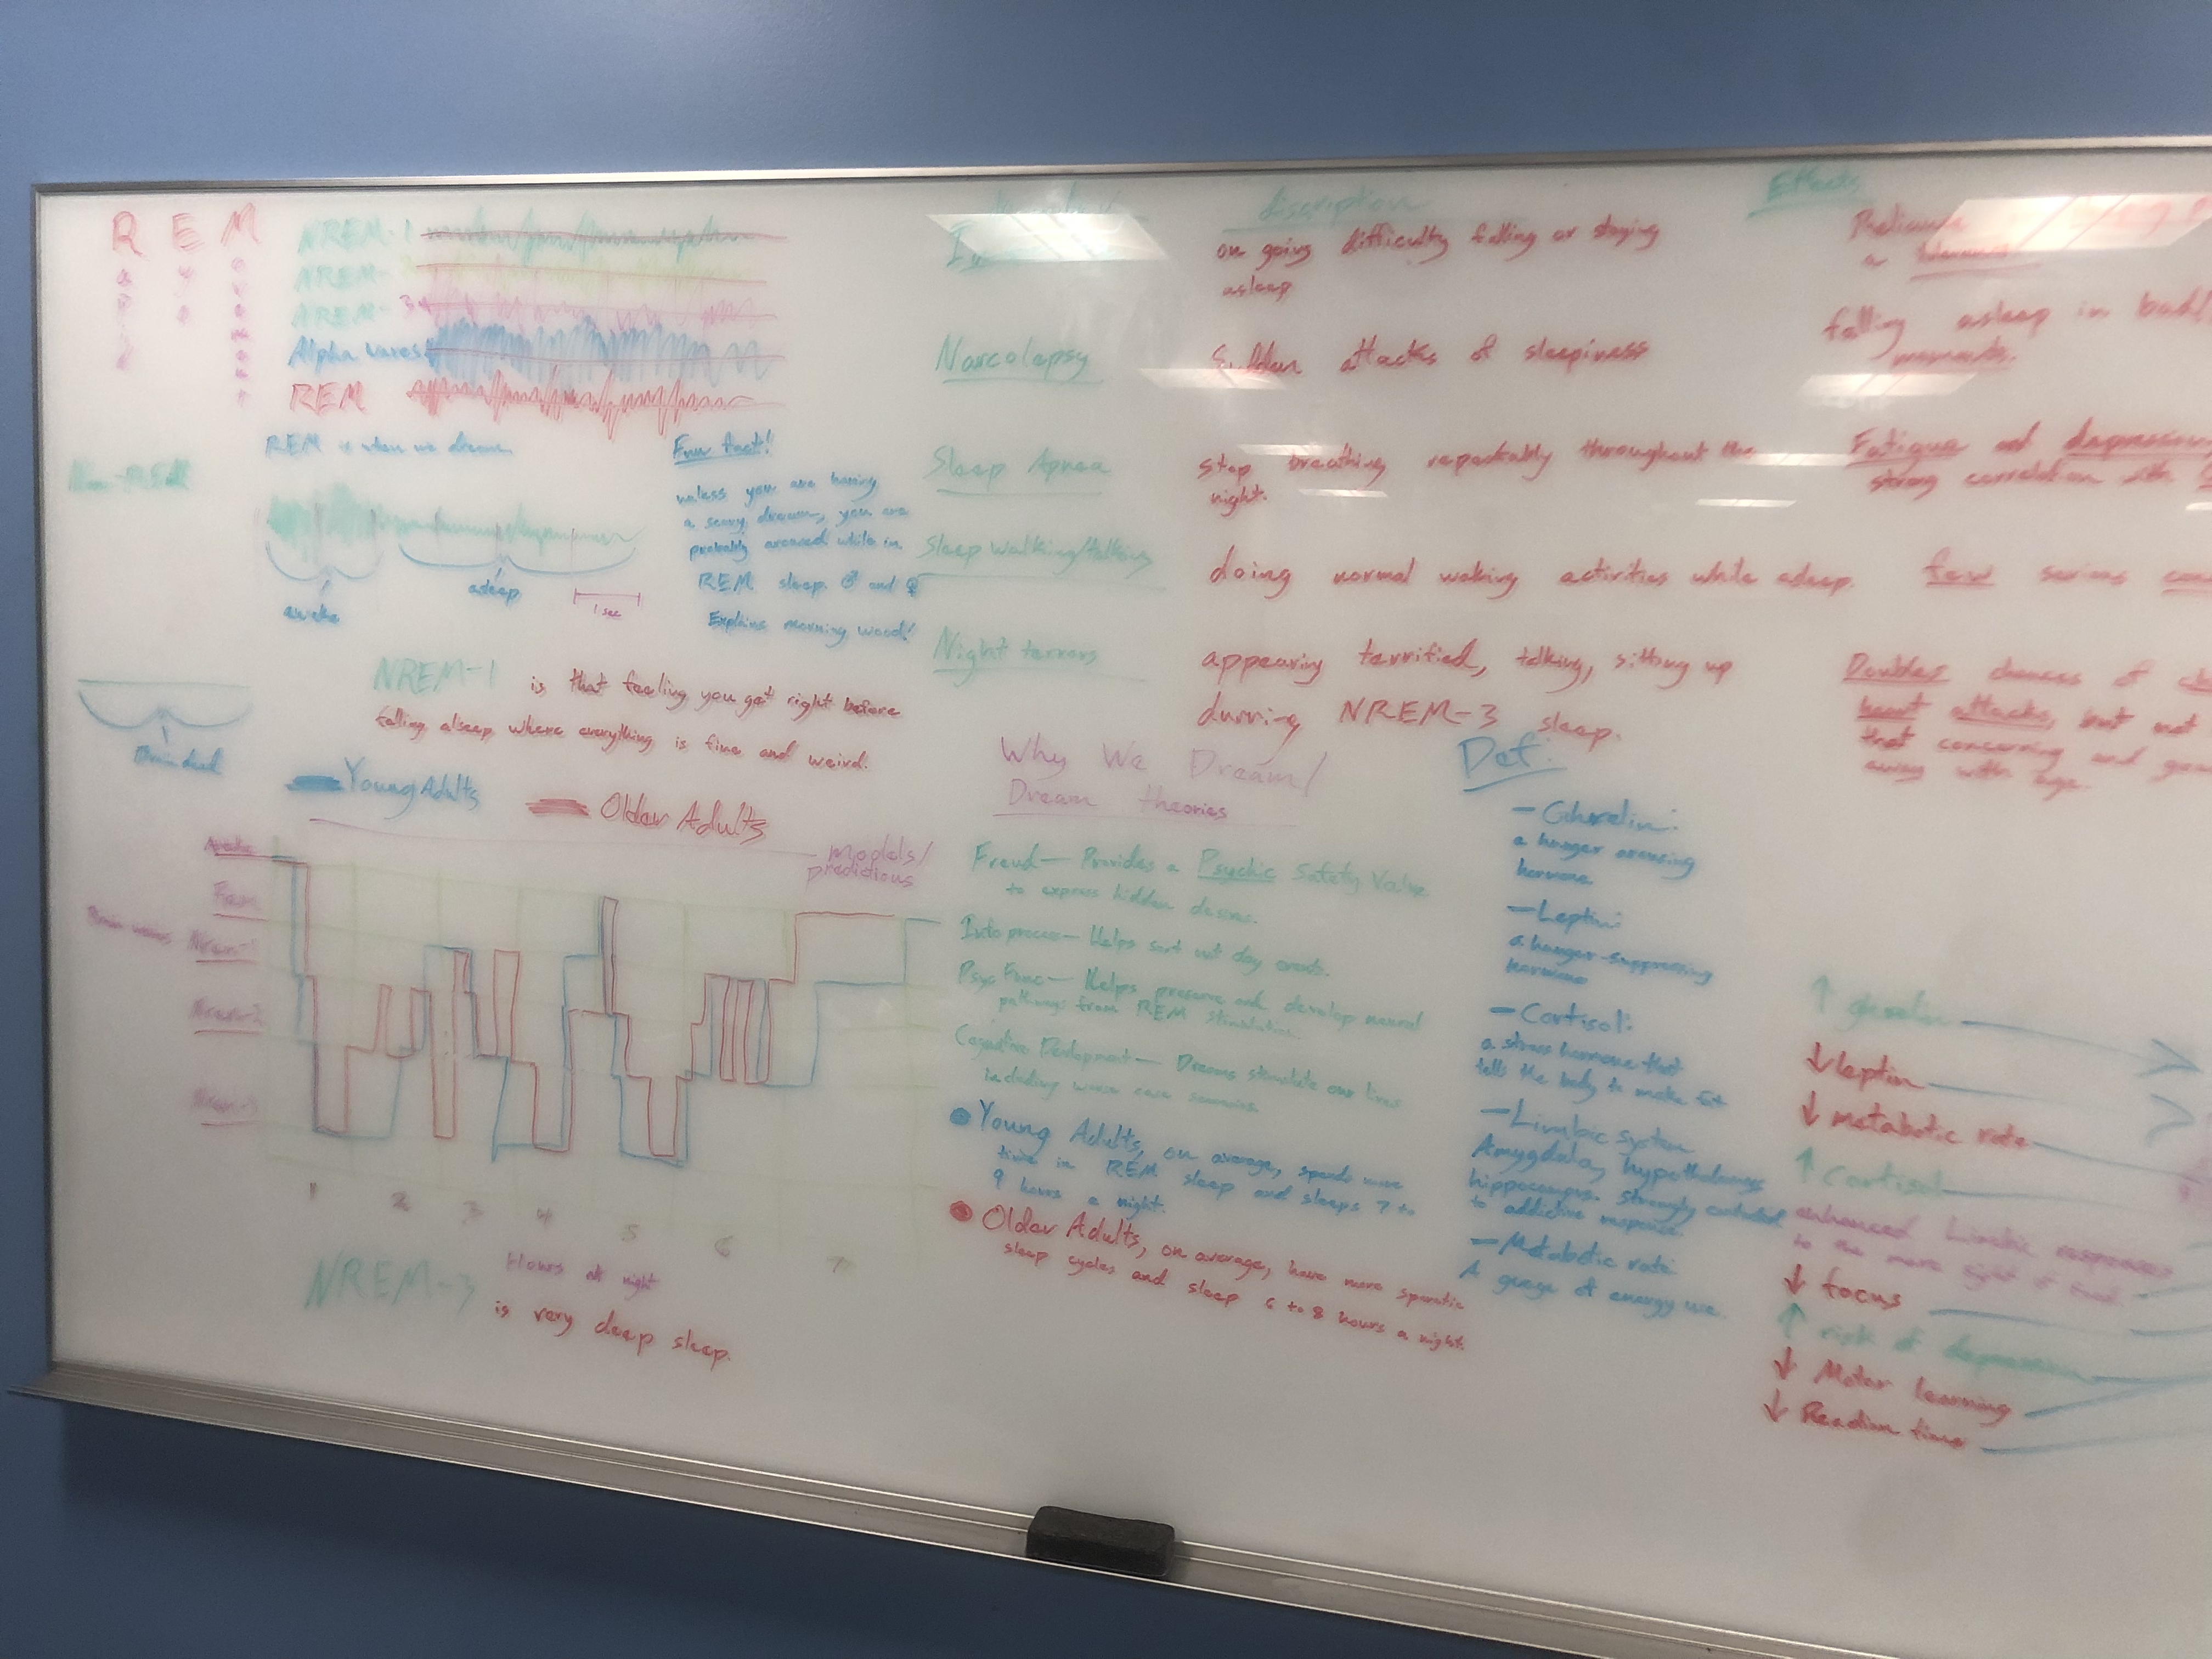 R E M
NREM-1
NREM-
NREM-3
Alpha waves
REM
REM is when we dream
Non-REM
awake
asleep
1 sec
Fun fact!
unless you are having
a scary dream, you are
probably aroused while in
REM sleep. ♂ and ♀
Explains morning wood!
Brain dead
NREM-1 is that feeling you get right before
falling alseep where everything is fine and weird.
Young Adults
Older Adults
models/
predictions
Awake
Rem
Brain waves
Nrem-1
Nrem-2
Nrem-3
1 2 3 4 5 6 7
Hours at night
NREM-3 is very deep sleep.
discription
Effects
on going difficulty falling or staying
asleep
Narcolepsy
Sudden attacks of sleepiness
falling asleep in bad
moments.
Sleep Apnea
stop breathing repeatably throughout the
night.
Fatigue and depression,
strong correlation with
Sleep walking/talking
doing normal waking activities while asleep.
few serious
Night terrors
appearing terrified, talking, sitting up
durring NREM-3 sleep.
Doubles chances of
heart attacks, but not
that concerning and
away with age.
Why We Dream/
Dream theories
Freud— Provides a Psychic Safety Valve
to express hidden desires.
Info process— Helps sort out day events.
Psys Func— Helps preserve and develop neural
pathways from REM stimulation
Cognitive Devlopment— Dreams simulate our lives
including worse case scenarios.
Young Adults, on average, spends more
time in REM sleep and sleeps 7 to
9 hours a night.
Older Adults, on average, have more sporatic
sleep cycles and sleep 6 to 8 hours a night.
Def:
— Ghrelin:
a hunger arousing
hormone
— Leptin:
a hunger-suppressing
hormone
— Cortisol:
a stress hormone that
tells the body to make fat
— Limbic system
Amygdala, hypothalamus
hippocampus. Strongly
to addictive response.
— Metabolic rate
A guage of energy use.
↑
↓ leptin
↓ metabolic rate
↑ cortisol
enhanced Limbic response
to the mere sight of food.
↓ focus
↑ risk of depression
↓ Motor learning
↓ Reaction time